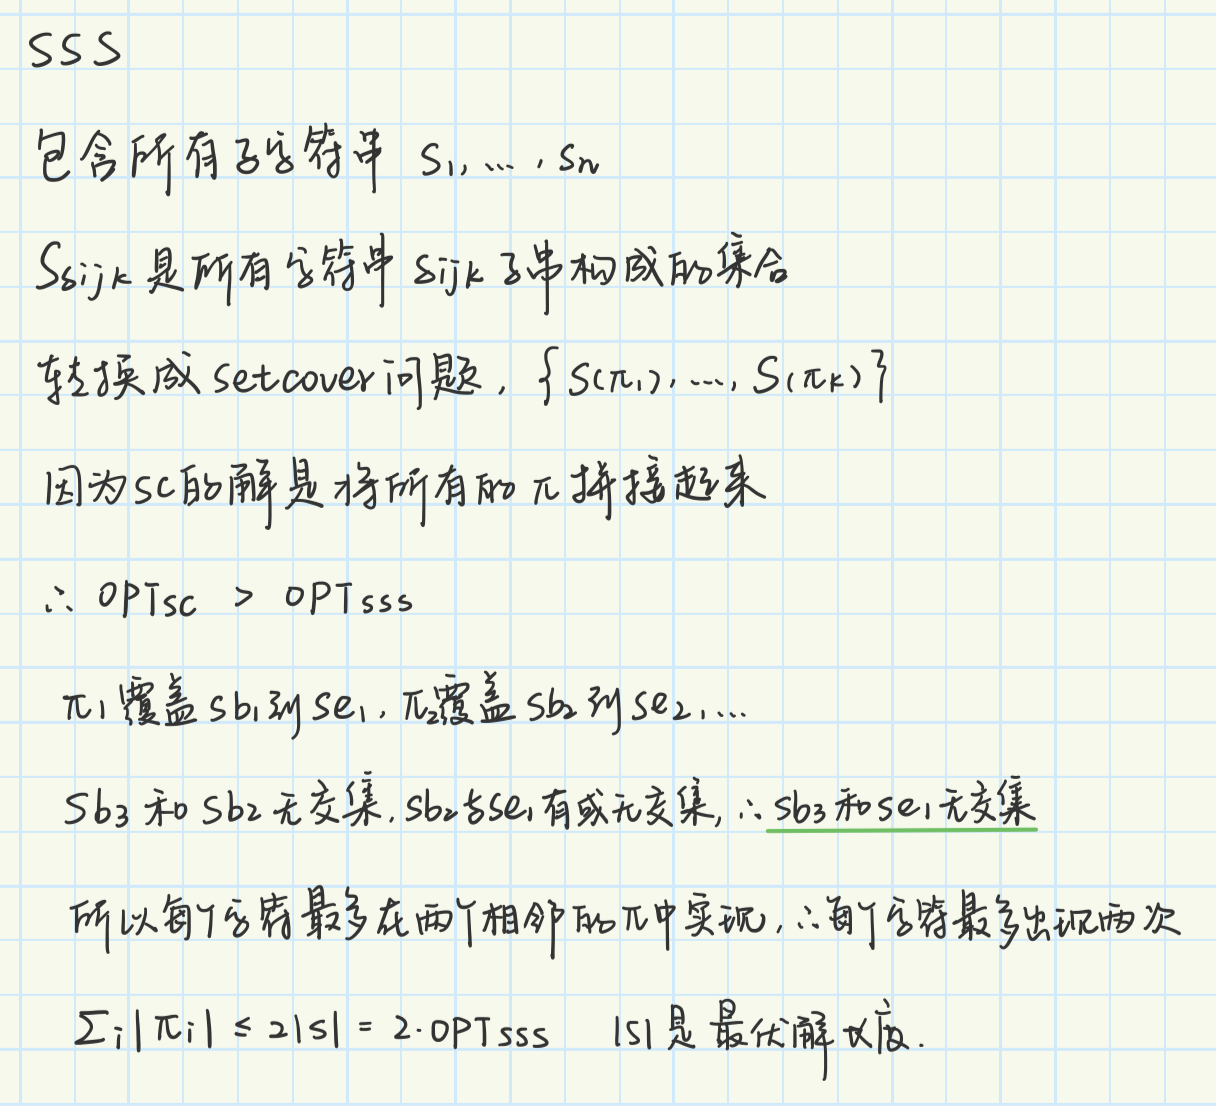 SSS
包含所有子字符串 S1, ..., Sn
Ssijk 是所有字符串 sijk 子串构成的集合
转换成 set cover 问题, {S(π1), ..., S(πk)}
因为SC的解是将所有的π拼接起来
∴ OPTsc > OPTsss
π1覆盖sb1到se1, π2覆盖sb2到se2, ...
Sb3和Sb2无交集, sb2与se1有或无交集, ∴ sb3和se1无交集
所以每个字符最多在两个相邻的π中实现, ∴每个字符最多出现两次
Σi|πi| ≤ 2|s| = 2·OPTsss |s|是最优解长度.